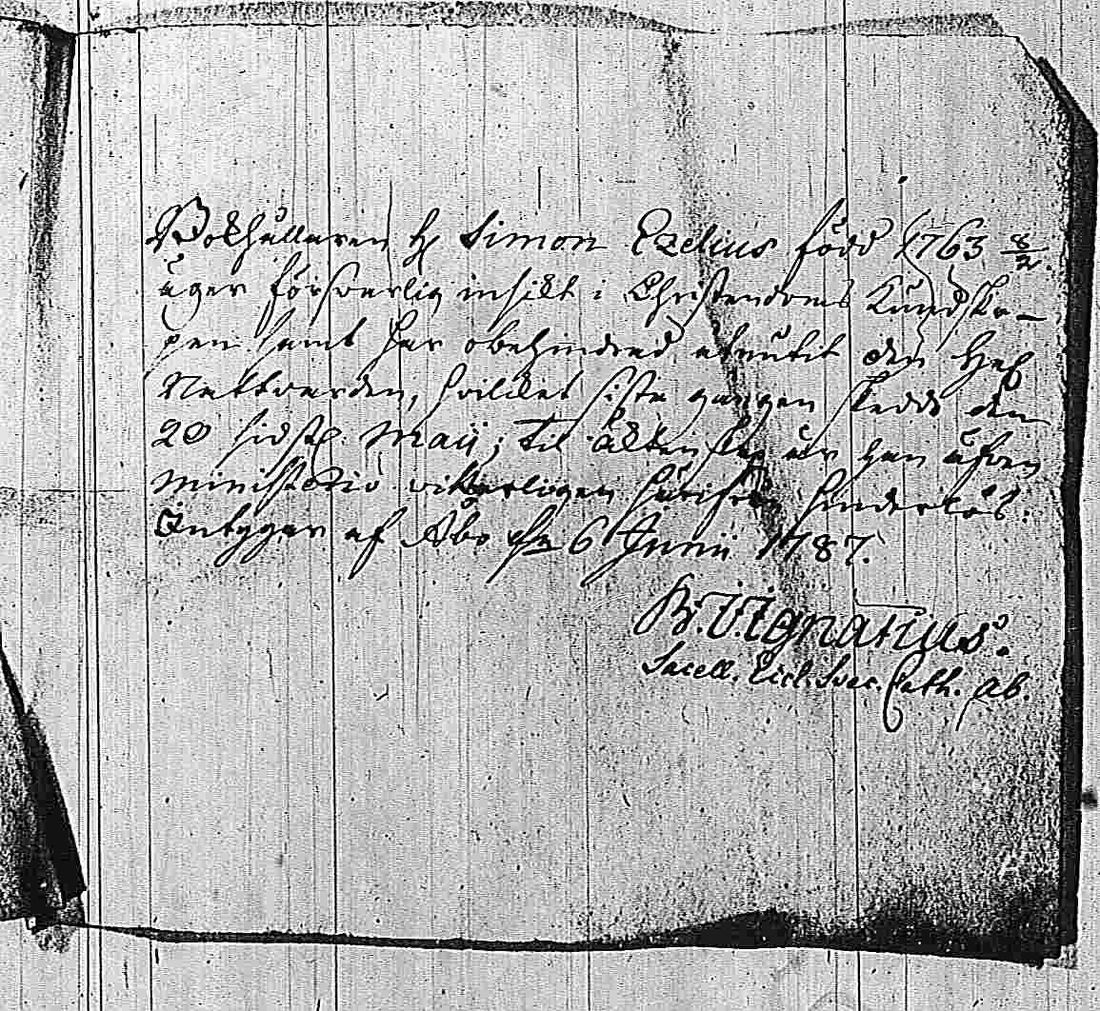 Bokhållaren H. Simon Ezelius född 1763 8/2.
äger försvarlig insikt i Christendoms Kundska-
pen samt har obehindrad niutit den Helg.
Nattvarden, hvilket sista gången skedde den
20 sidstl. Maij; til äktenskap är han äfven
Ministerio vitterligen härifrån hinderlös.
Intygar af Åbo d. 6 Junii 1787.
B. J. Ignatius.
Sacell. Eccl. Svec. Cath. Ab.